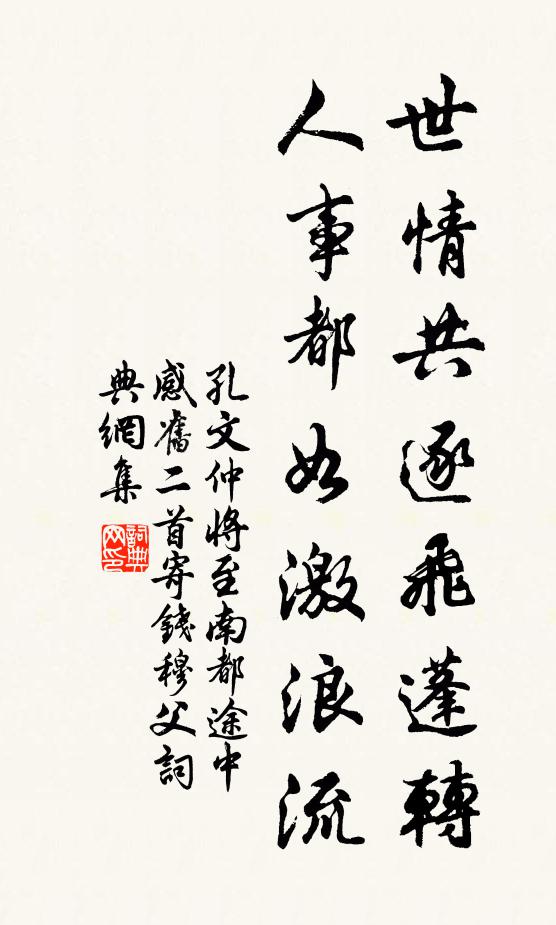 世情共逐飛蓬轉
人事都如激浪流
孔文仲將至南都途中
感舊二首寄錢穆父詞
典網集
詞典
网印